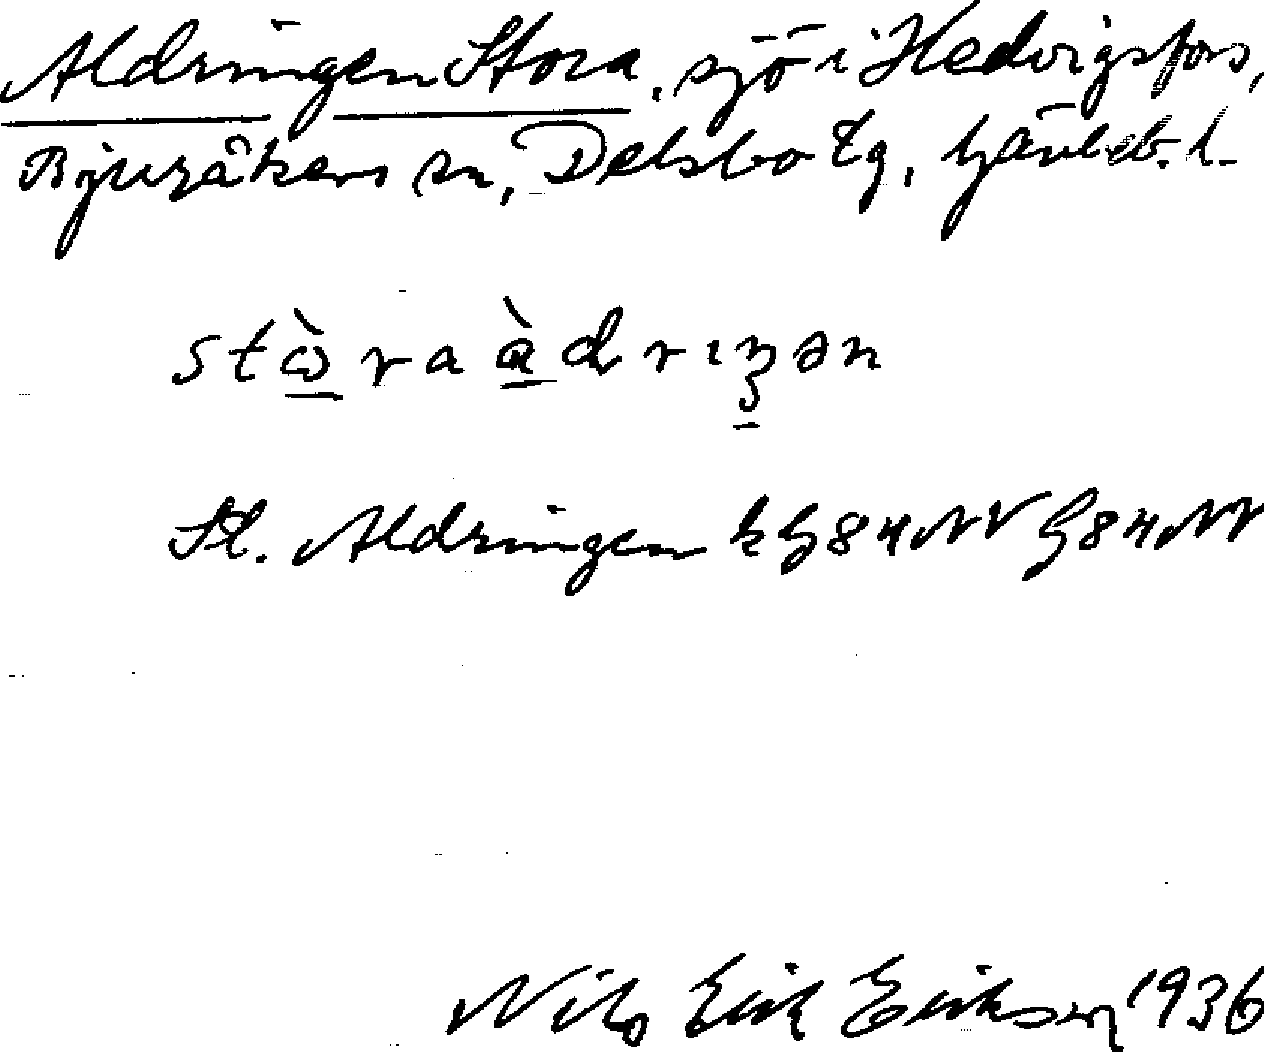 Aldringen Stora, sjö i Hedvigsfors,
Bjuråkers sn, Delsbo tg, Gävleb. l.
stὼra àdrıŋən
St. Aldringen k G 84 NV G 84 NV
Nils Erik Erikson 1936